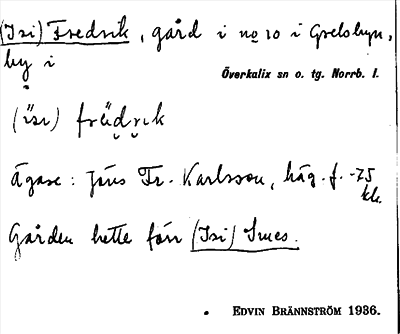 (Isi) Fredrik, gård i no 10 i Grelsbyn,
by i
Överkalix sn o. tg. Norrb. l.
(ìsı) frèdrık
Ägare: Jöns Fr. Karlsson, häg. f. -75
Gården hette förr (Isi) Smes.
EDVIN BRÄNNSTRÖM 1936.